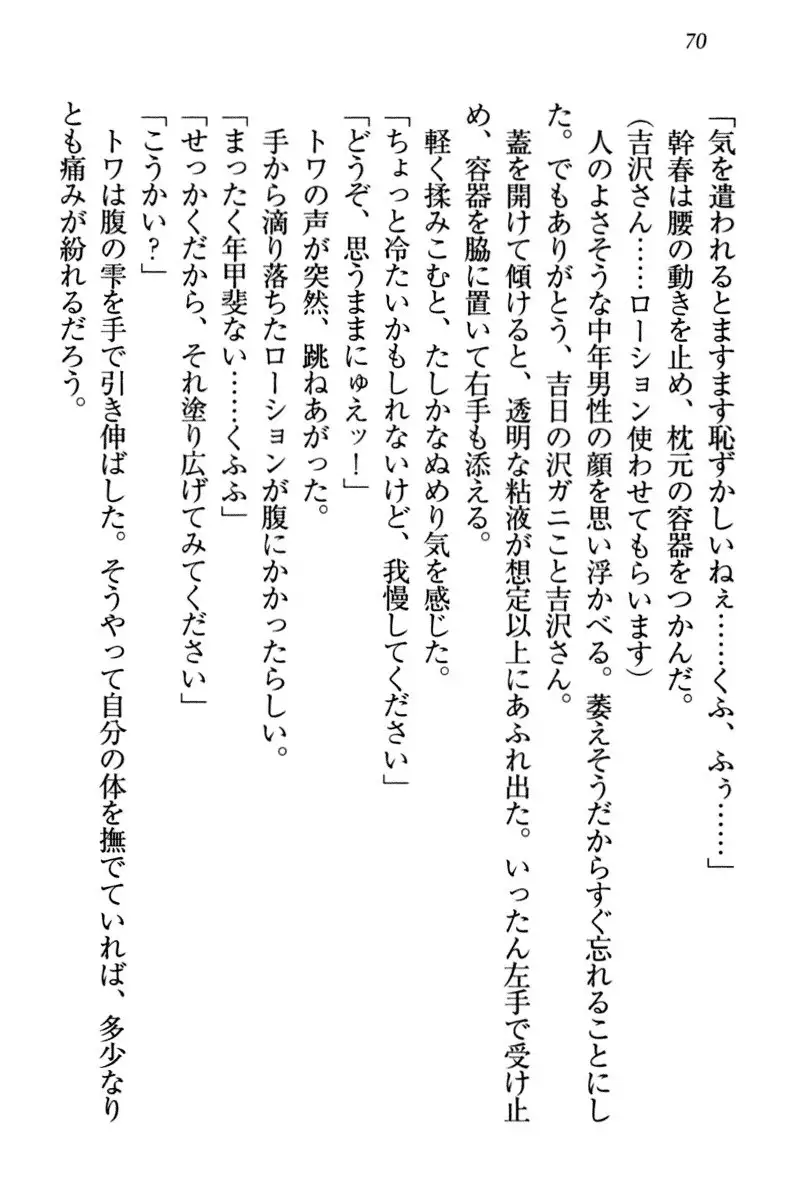 70
「気を遣われるとますます恥ずかしいねぇ……くふ、ふぅ……」
幹春は腰の動きを止め、枕元の容器をつかんだ。
(吉沢さん……ローション使わせてもらいます)
人のよさそうな中年男性の顔を思い浮かべる。萎えそうだからすぐ忘れることにし
た。でもありがとう、吉日の沢ガニこと吉沢さん。
蓋を開けて傾けると、透明な粘液が想定以上にあふれ出た。いったん左手で受け止
め、容器を脇に置いて右手も添える。
軽く揉みこむと、たしかなぬめり気を感じた。
「ちょっと冷たいかもしれないけど、我慢してください」
「どうぞ、思うままにゅえッ！」
トワの声が突然、跳ねあがった。
手から滴り落ちたローションが腹にかかったらしい。
「まったく年甲斐ない……くふふ」
「せっかくだから、それ塗り広げてみてください」
「こうかい？」
トワは腹の雫を手で引き伸ばした。そうやって自分の体を撫でていれば、多少なり
とも痛みが紛れるだろう。